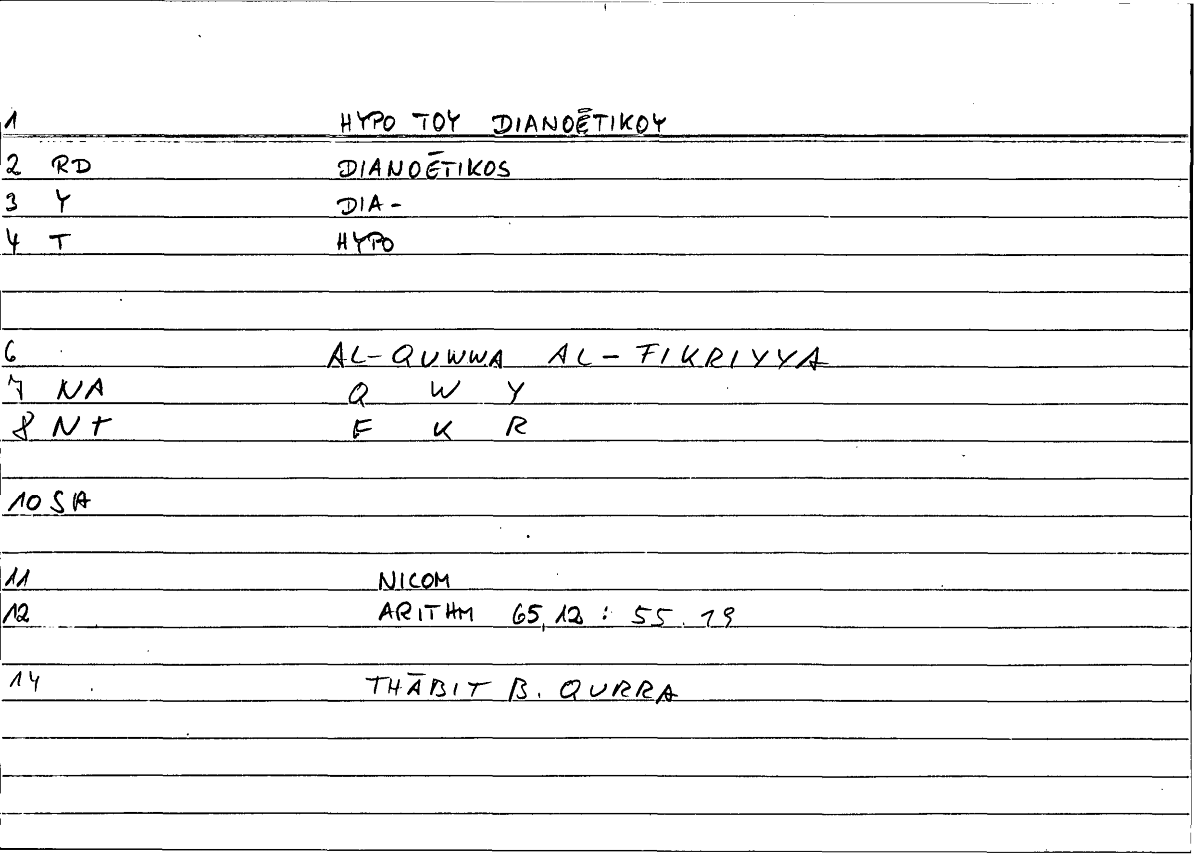 1 HYPO TOY DIANOĒTIKOY
2 RD DIANOĒTIKOS
3 Y DIA-
4 T HYPO
6 AL-QUWWA AL-FIKRIYYA
7 NA Q W Y
8 NT F K R
10 SA
11 NICOM
12 ARITHM 65,12 : 55.19
14 THĀBIT B. QURRA